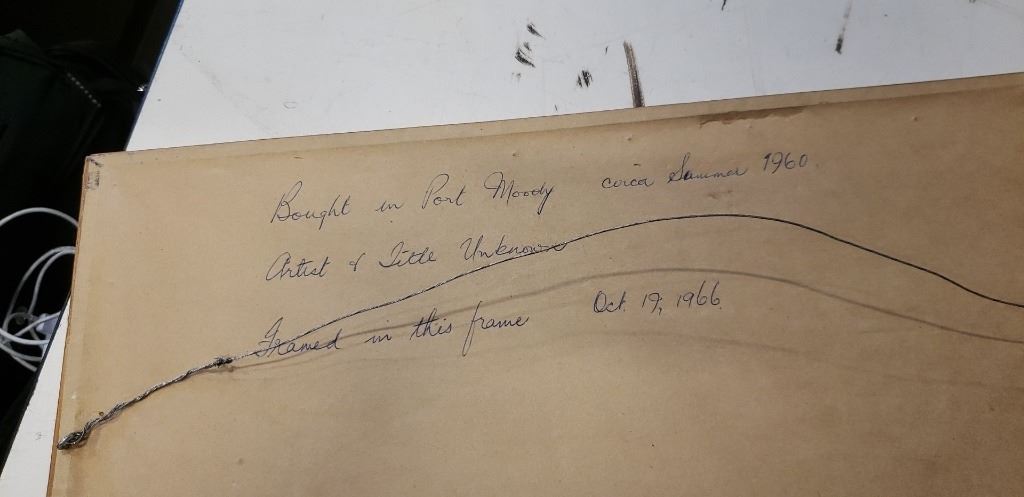 Bought in Port Moody circa Summer 1960.
Artist & Title Unknown
Framed in this frame Oct. 19, 1966.